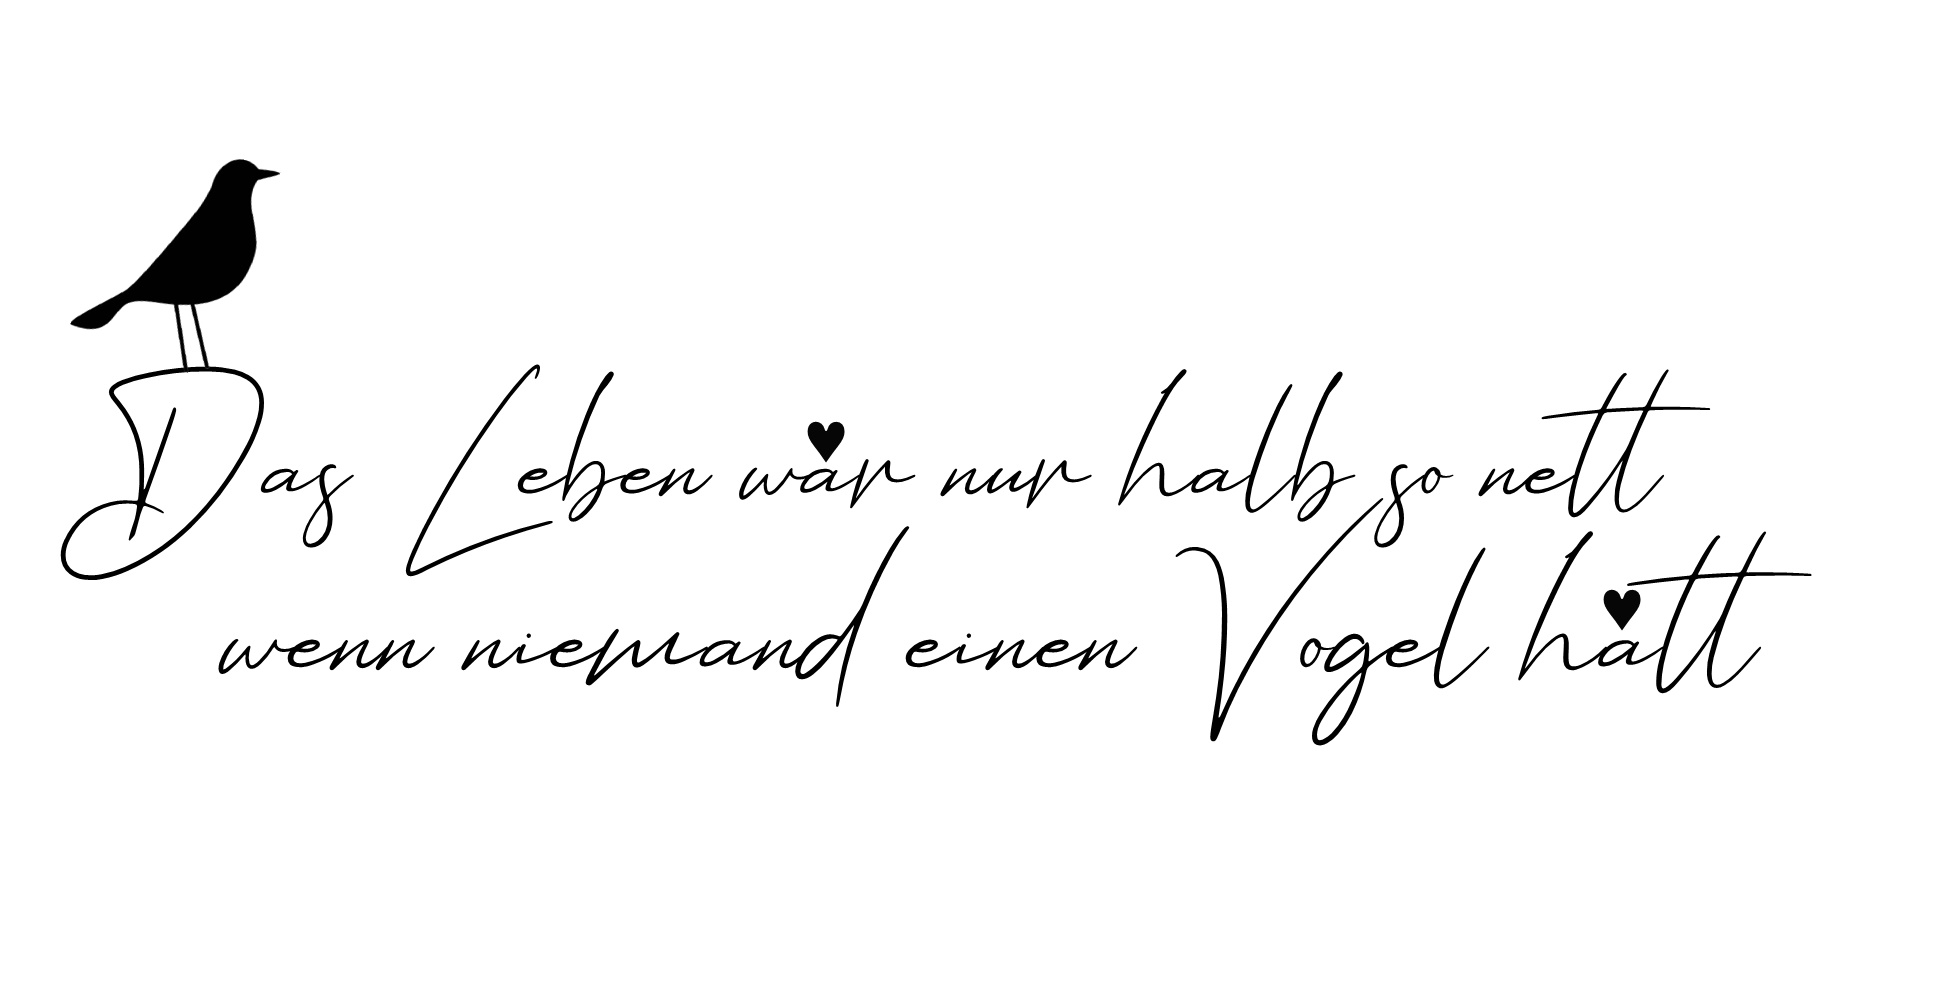 Das Leben wär nur halb so nett
wenn niemand einen Vogel hätt